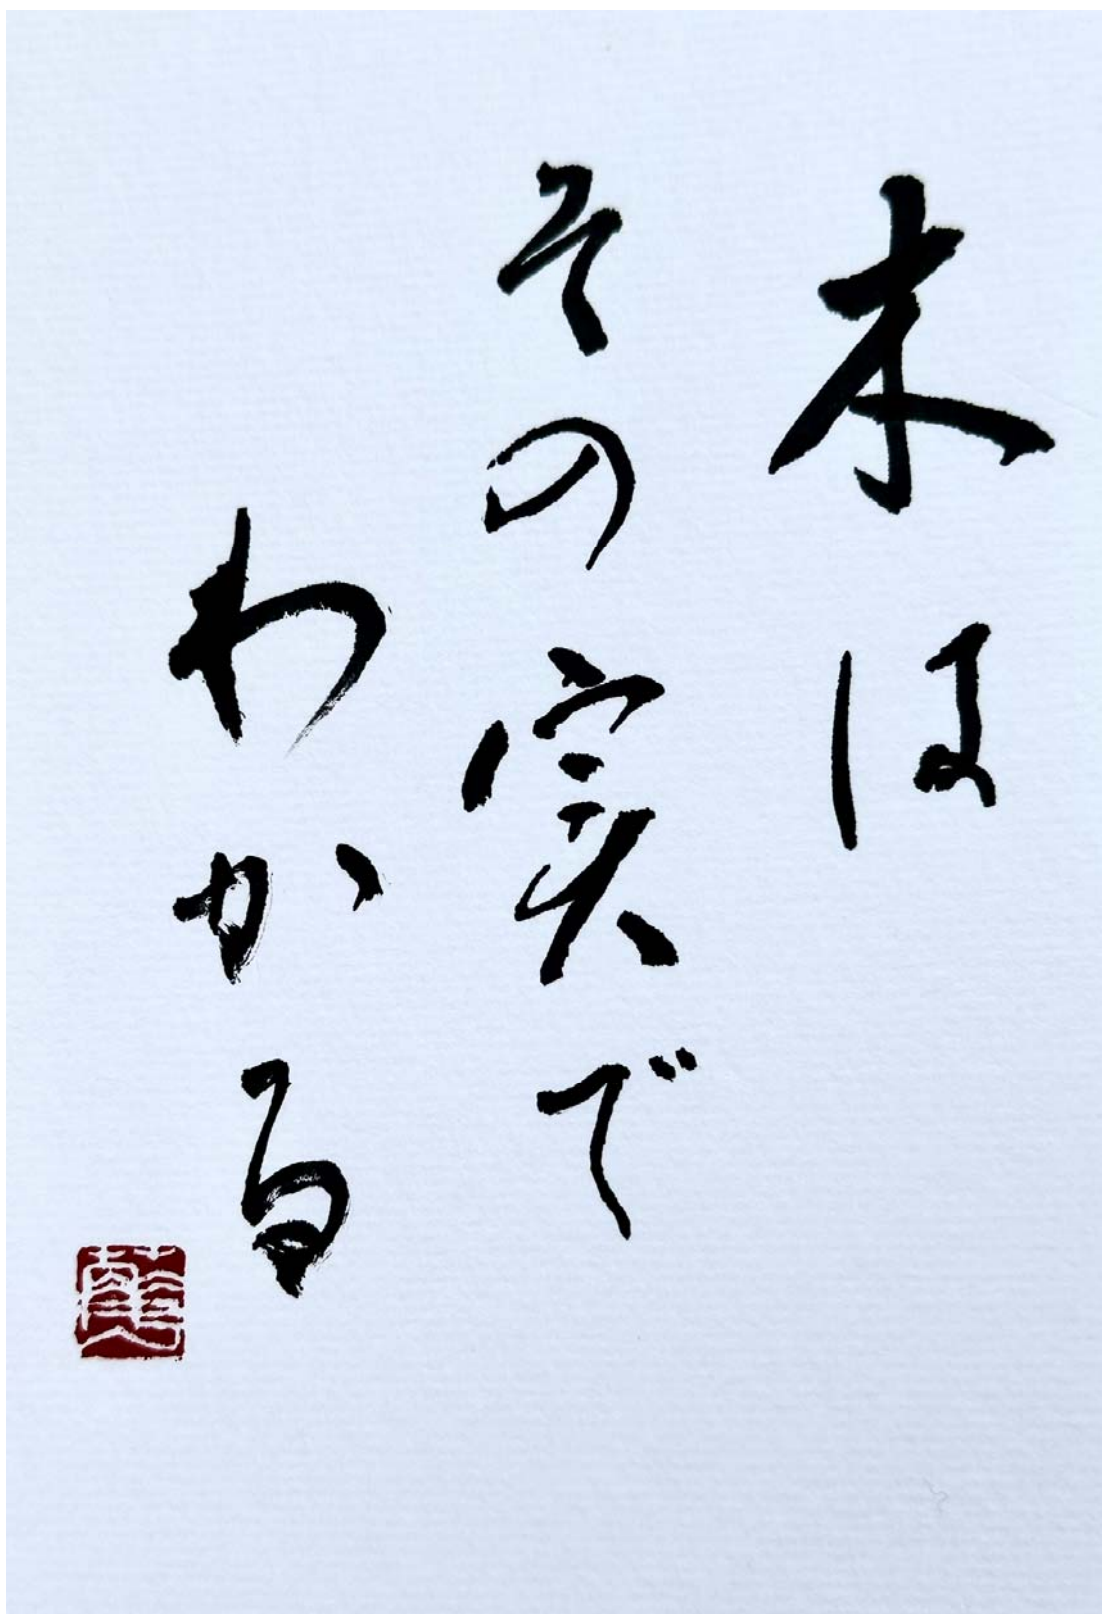 木は
その実で
わかる